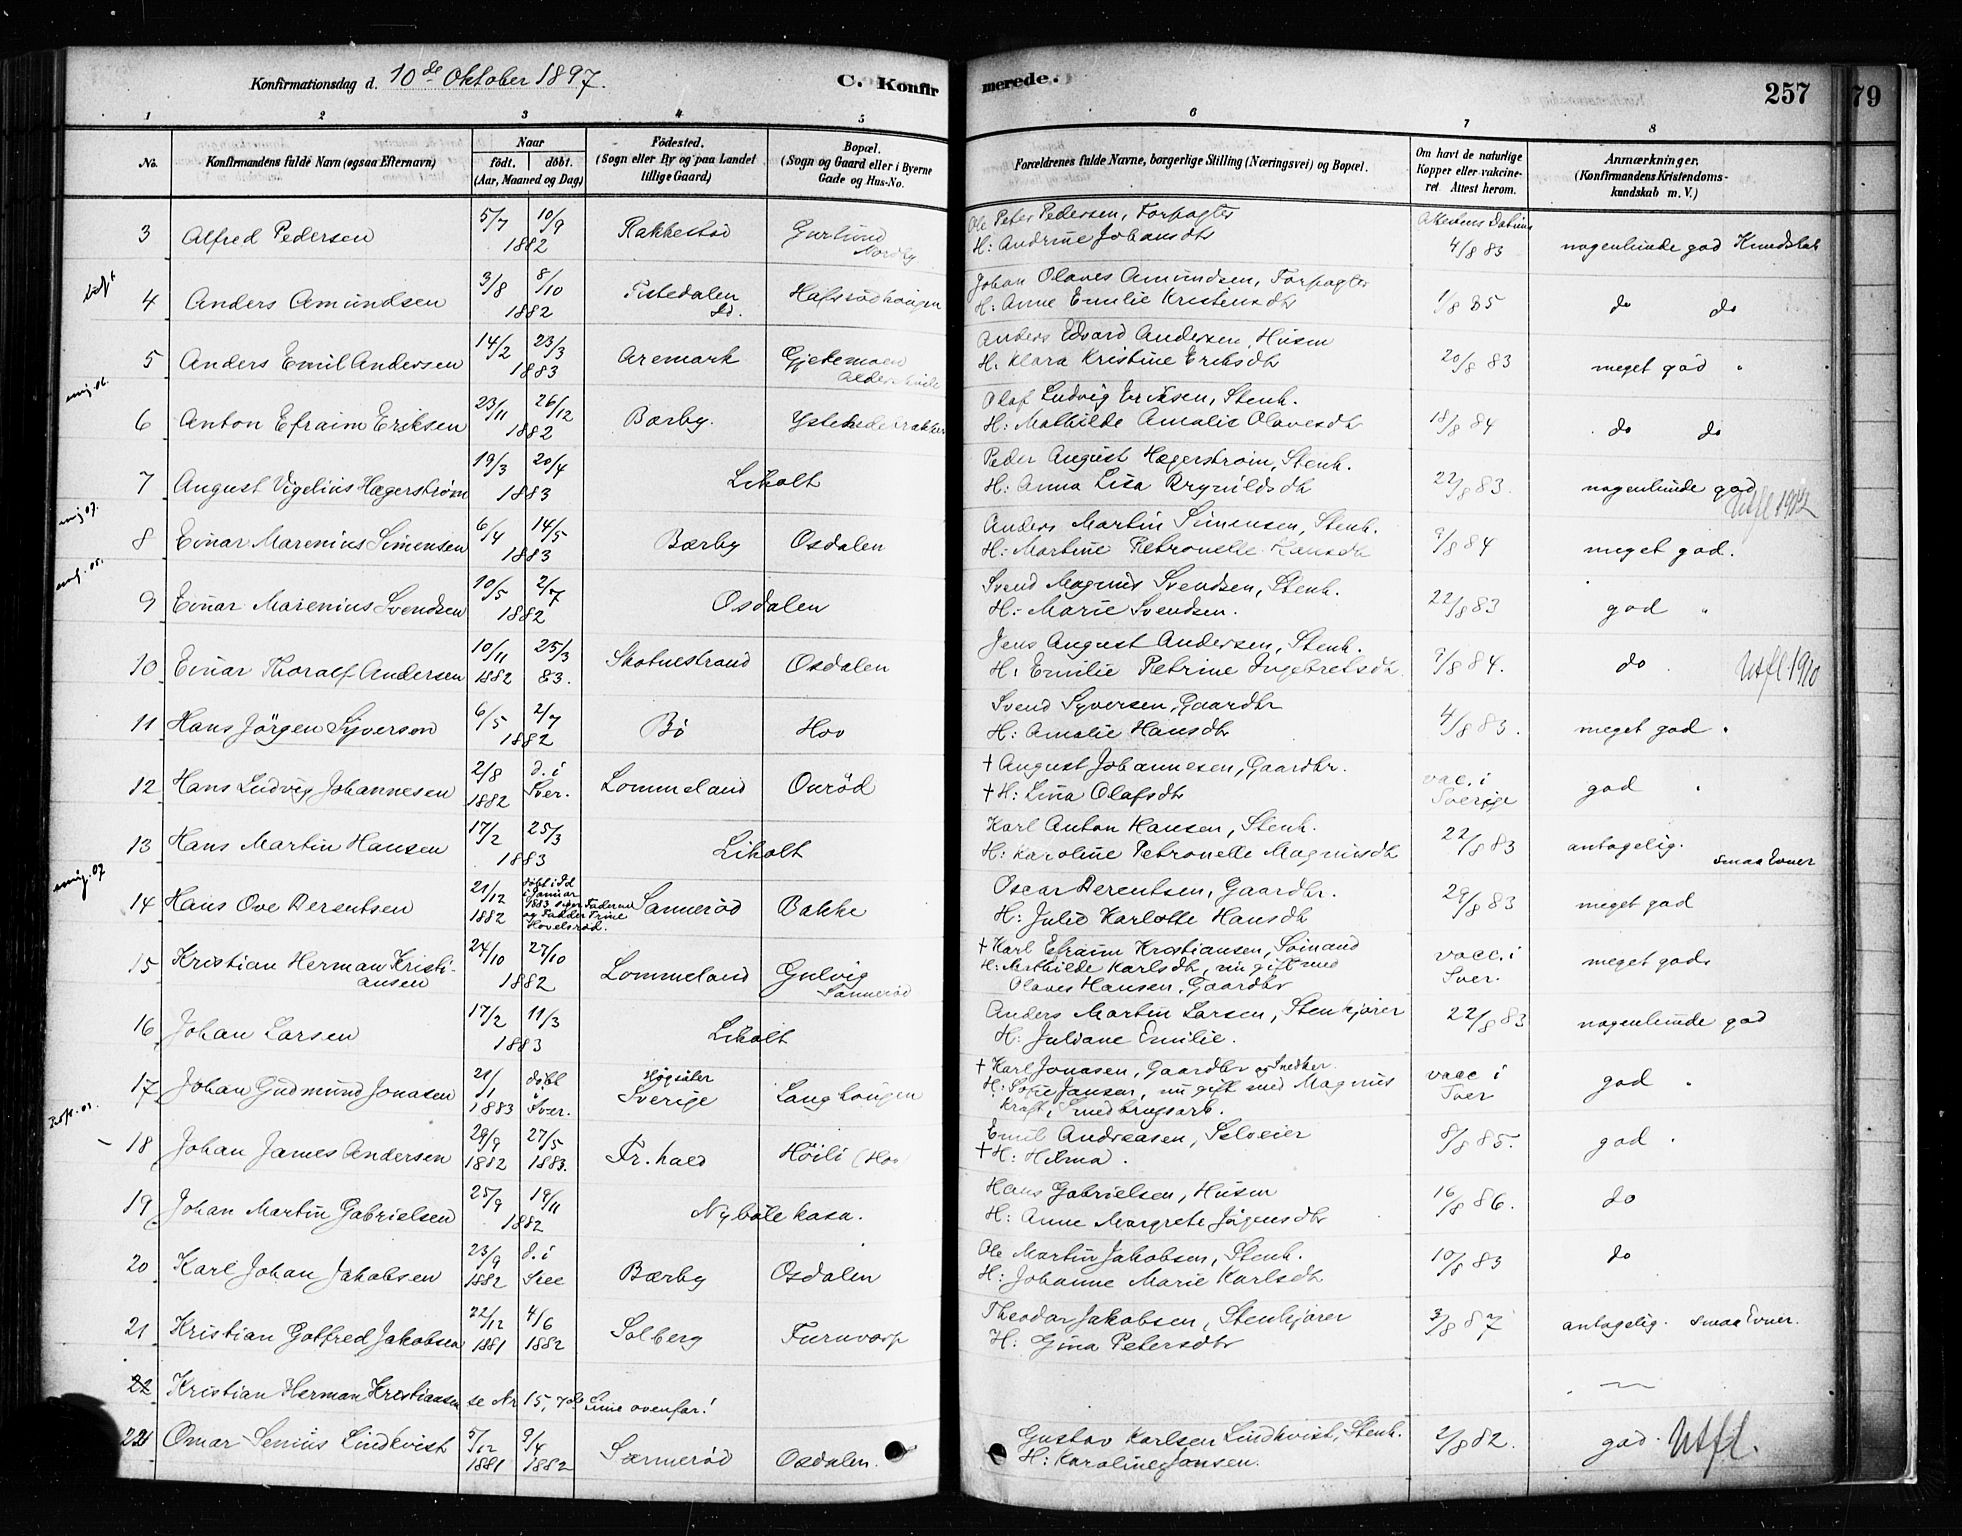 Konfirmationsdag d. 10de Oktober 1897. C. Konfirmerede. 257 79
1 2 3 4 5 6 7 8
No. Konfirmandens fulde Navn (ogsaa Efternavn) Naar født. døbt. (Aar, Maaned og Dag) Fødested. (Sogn eller By og paa Landet tillige Gaard) Bopæl. (Sogn og Gaard eller i Byerne Gade og Hus-No. Forældrenes fulde Navne, borgerlige Stilling (Næringsvei) og Bopæl. Om havt de naturlige Kopper eller vakcineret. Attest herom. Anmærkninger. (Konfirmandens Kristendomskundskab m. V.)
3 Alfred Pedersen 5/7 10/9 1882 Rakkestad Nordby Ole Peter Pedersen, Forpagter
H: Andrine Johansdtr Attestens Datum 4/8 83 nogenlunde god Kundskab
4 Anders Amundsen 3/8 8/10 1882 Tistedalen Id. Hafsrødhaugen Johan Olaves Amundsen, Forpagter
H: Anne Emilie Kristensdtr 1/8 85 do do
5 Anders Emil Andersen 14/2 23/3 1883 Aremark Gjetemoen Anders Edvard Andersen, Husm
H. Klara Kristine Eriksdtr 20/8 83 meget god
emig. 06.
6 Anton Efraim Eriksen 23/11 26/12 1882 Bærby. Ystehedebakken Olaf Ludvig Eriksen, Stenh.
H: Mathilde Amalie Olavesdtr 18/8 84 do do
7 August Vigelius Hægerstrøm 19/3 20/4 1883 Liholt Peder August Hægerstrøm, Stenh.
H: Anna Lisa Brynildsdtr 22/8 83. nogenlunde god Utfl 1912
emig 07.
8 Einar Marenius Simensen 6/4 14/5 1883 Bærby Osdalen Anders Martin Simensen, Stenh.
H: Martine Petronelle Hansdtr 9/8 84 meget god.
emig. 05.
9 Einar Marenius Svendsen 10/5 2/7 1882 Osdalen Svend Magnus Svendsen, Stenh.
H: Marie Svendsen. 22/8 83 god
10 Einar Thoralf Andersen 10/11 1882 25/3 83. Skotnestrand Osdalen Jens August Andersen, Stenh.
H: Emilie Petrine Ingebretsdtr. 9/8 84. do Utfl 1910
11 Hans Jörgen Syversen 6/5 2/7 1882 Bø Hov Svend Syversen, Gaardbr
H: Amalie Hansdtr 4/8 83. meget god
12 Hans Ludvig Johannesen 2/8 1882 d. i Sver. Lommeland Onrød † August Johannesen, Gaardbr.
† H: Lina Olafsdtr vac. i Sverige god
13 Hans Martin Hansen 17/2 25/3 1883 Liholt Karl Anton Hansen, Stenh.
H: Karoline Petronelle Magnusdtr 22/8 83 antagelig. smaa Evner
emig. 07
14 Hans Ove Berentsen 21/12 1882 døbt i Id i Januar 1883 siger Faderen og Fadder Trine Hovelsrød. Sannerød Bakke Oscar Berentsen, Gaardbr.
H: Julie Karlotte Hansdtr 29/8 83 meget god
15 Kristian Herman Kristiansen 24/10 27/10 1882 Lommeland Gulvig Sannerød † Karl Efraim Kristiansen, Sømand
H: Mathilde Karlsdtr, nu gift med
Olaves Hansen, Gaardbr vacc. i Sver. meget god.
16 Johan Larsen 17/2 11/3 1883 Liholt Anders Martin Larsen, Stenkjører
H: Juliane Emilie. 22/8 83 nogenlunde god
17 Johan Gudmund Jonasen 21/1 1883 døbt i Sver. Högsäter Sverige Langhaugen † Karl Jonasen, Gaardbr og Snedker
H: Sofie Jansen, nu gift med Magnus
Kraft, Smedbrugsarb. vacc i Sver god
18 Johan James Andersen 29/9 1882 27/5 1883. Fr.hald Høili (Hov Emil Andreasen, Selveier
† H: Hilma. 8/8 85. god
19 Johan Martin Gabrielsen 25/9 19/11 1882 Nybølekasa. Hans Gabrielsen, Husm
H: Anne Margrete Jörgensdtr 16/8 86. do
20 Karl Johan Jakobsen 23/9 1882 d. i Sve Bærby Osdalen Ole Martin Jakobsen, Stenh.
H: Johanne Marie Karlsdtr 10/8 83 do
21 Kristian Gotfred Jakobsen 22/12 1881 4/6 1882 Solberg Furuvarp Theodor Jakobsen, Stenkjører
H: Gina Petersdtr 3/8 87 antagelig. smaa Evner.
22 Kristian Herman Kristiansen se Nr 15, 7de Linie ovenfor!
22 Omar Senius Lindkvist 5/12 1881 9/4 1882 Sannerød Osdalen. Gustav Karlsen Lindkvist, Stenh.
H: Karoline Jansen. 2/8 82. god. Utfl.